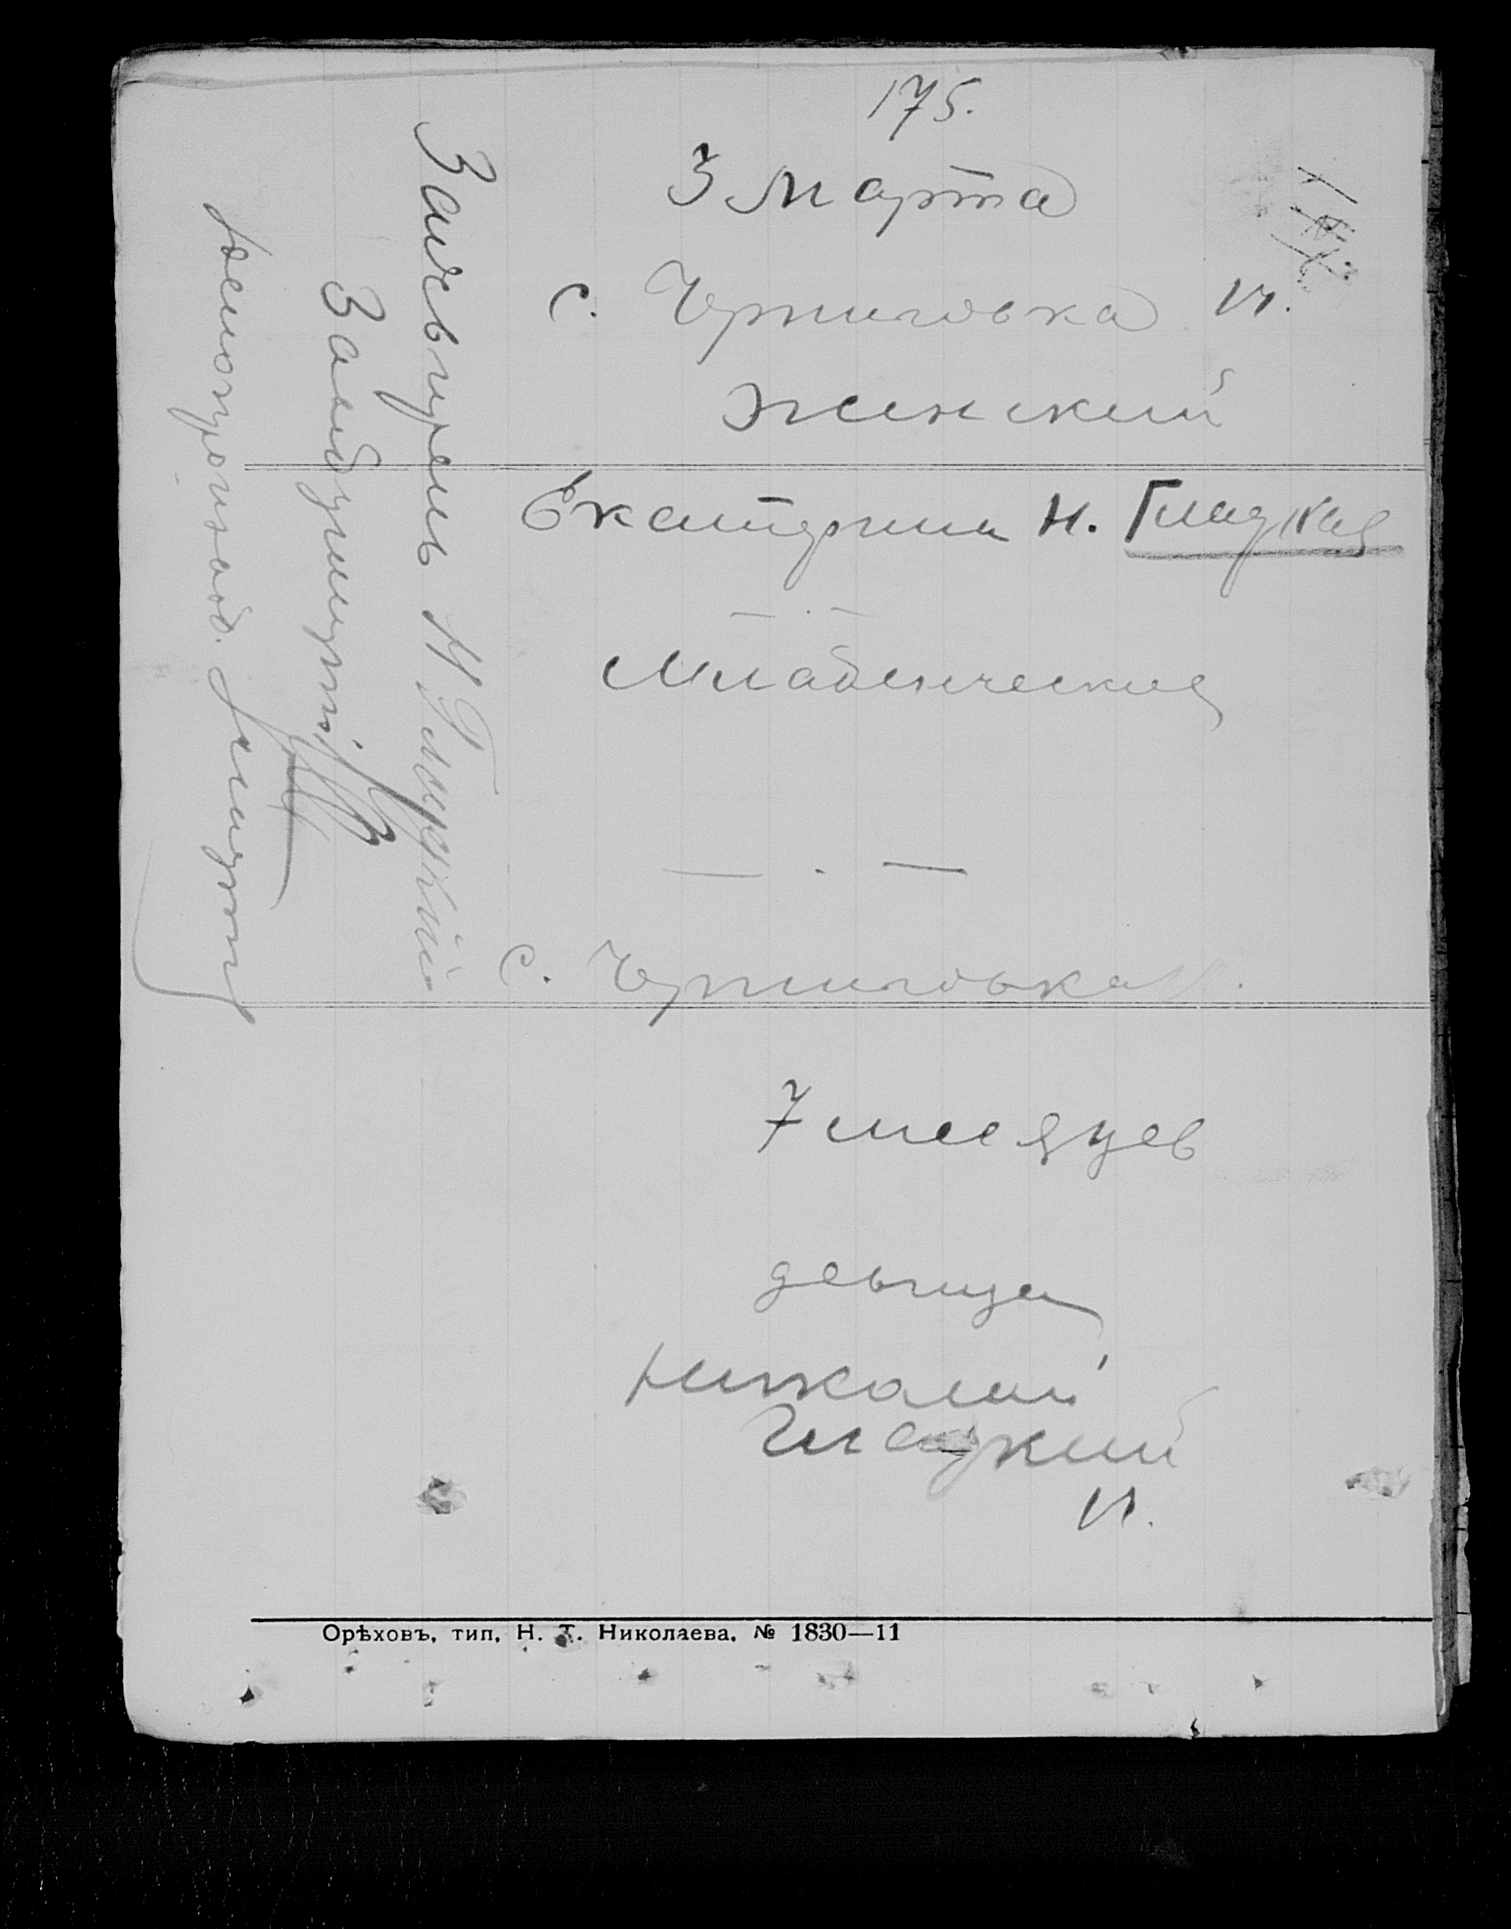 175.
3 марта
с. Черниговка И.
женский
Екатерина Н. Гладкая
— . —
Младенческие
— . —
с. Черниговка
7 месяцев
девица
Николай
Гладкий
И.
Заявитель Н Гладкий
Завед
делопроизвод.
Орѣховъ, тип. Н. Т. Николаева. № 1830—11